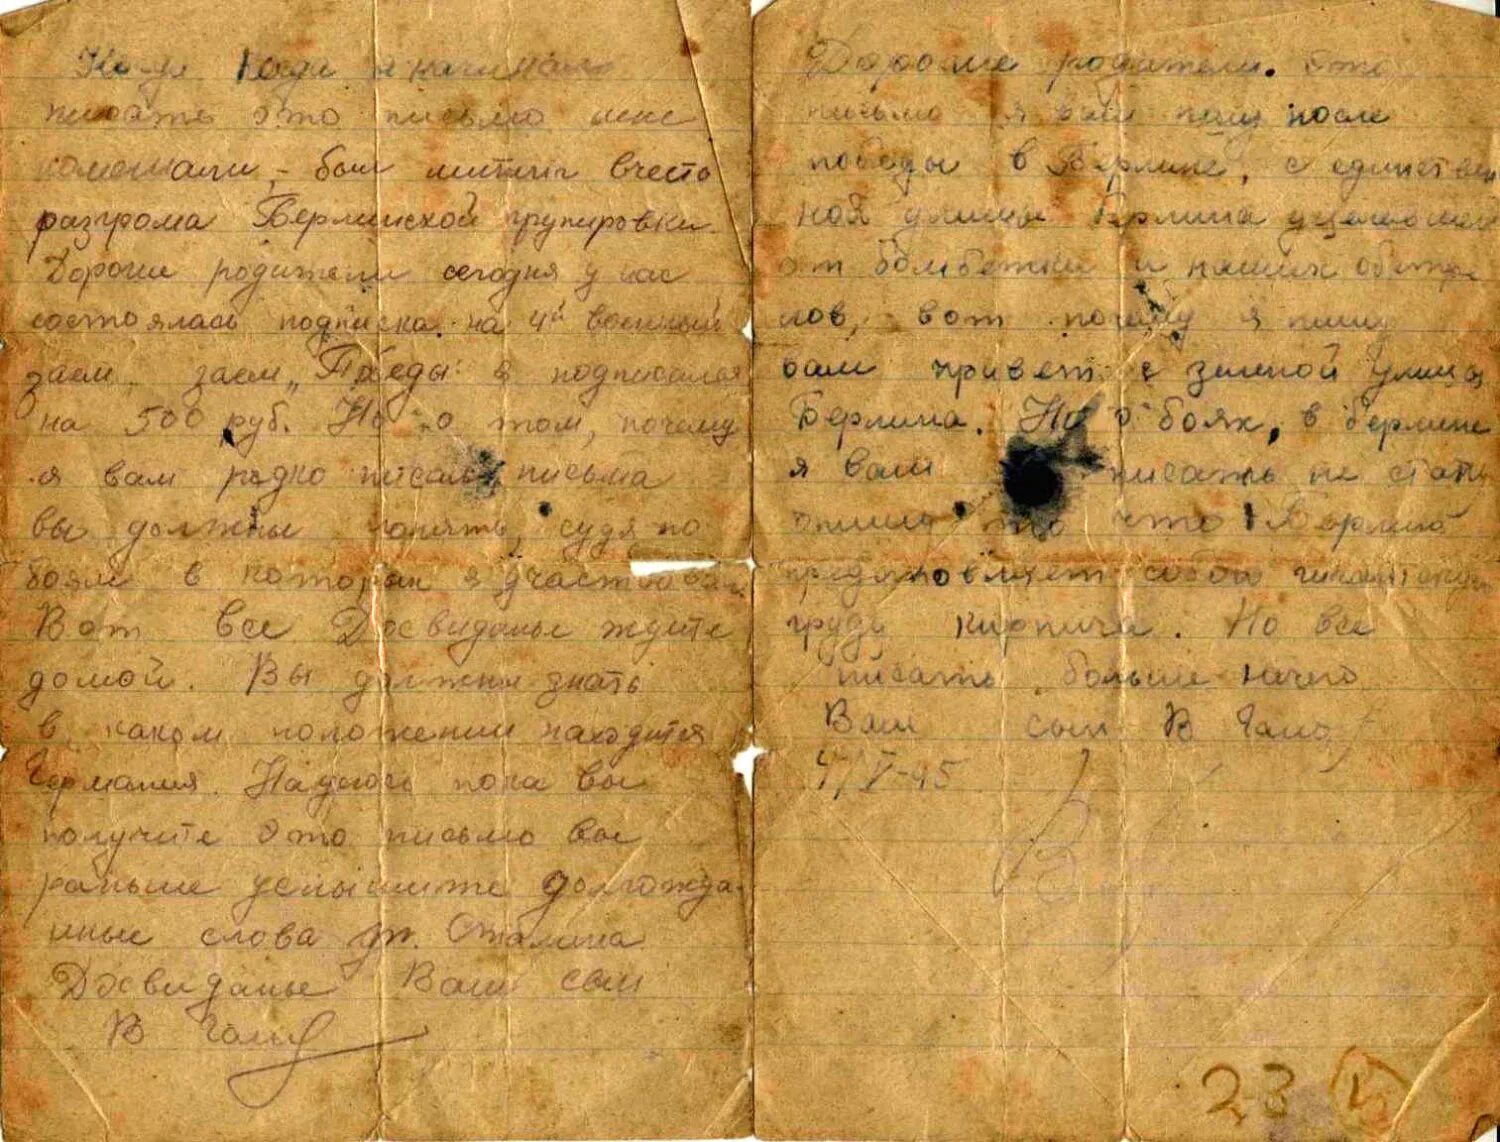 Когда я начинал
писать это письмо мне
помешали, - был митинг вчесть
разгрома Берлинской групировки.
Дорогие родители сегодня у нас
состоялась подписка на 4й военный
заем, заем „Победы" я подписался
на 500 руб. Но о том, почему
я вам редко писал письма
вы должны понять, судя по
боям в которых я участвовал.
Вот все Досвиданье ждите
домой. Вы должны знать
в каком положении находится
Германия. Надеюсь пока вы
получите это письмо вы
раньше услышите долгожда-
нные слова т. Сталина
Досвиданье Ваш сын
В
Дорогие родители. Это
письмо я вам пишу после
победы в Берлине, с единствен
ной улицы Берлина уцелевшей
от бомбежки и наших обстре
лов, вот почему я пишу
вам привет с улицы
Берлина. Но о боях, в берлине
я вам писать не стану
то что Берлин
представляет собой гигантскую
груду кирпича. Но все
писать больше нечего
Ваш сын В
V-45
23